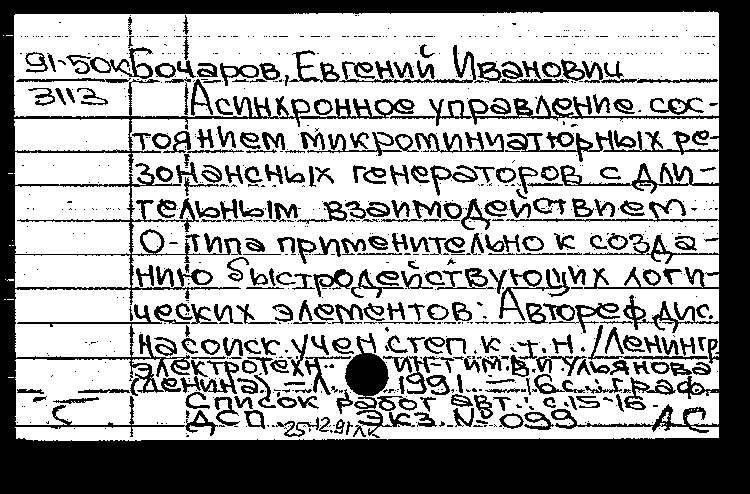 91-50к Бочаров, Евгений Иванович
3113 Асинхронное управление сос-
тоянием микроминиатюрных ре-
зонансных генераторов с дли-
тельным взаимодействием
О-типа применительно к созда-
нию быстродействующих логи-
ческих элементов: Автореф. дис.
на соиск. учен. степ. к.т.н. / Ленингр.
электротехн. ин-т им. В.И. Ульянова
(Ленина). - Л. 1991. - 16 с.: граф.
С Список работ авт.: с. 15-16.
ДСП. Экз. № 099 АС
25.12.91 ЛК